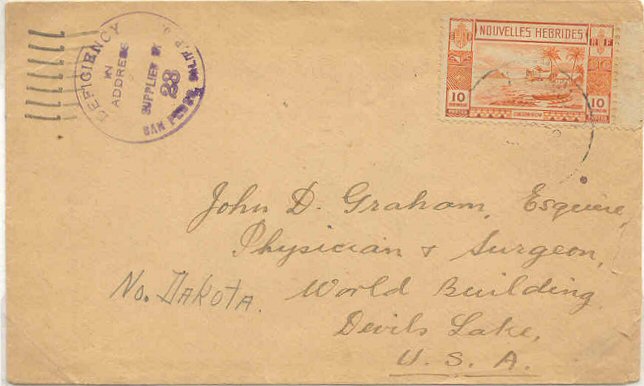 DEFICIENCY
IN
ADDRESS
SUPPLIED BY
28
SAN PEDRO, CALIF.
NOUVELLES HEBRIDES
RF
10 10
CONDOMINIUM
John D. Graham, Esquire,
Physician & Surgeon,
No. DAKOTA. World Building
Devils Lake,
U. S. A.